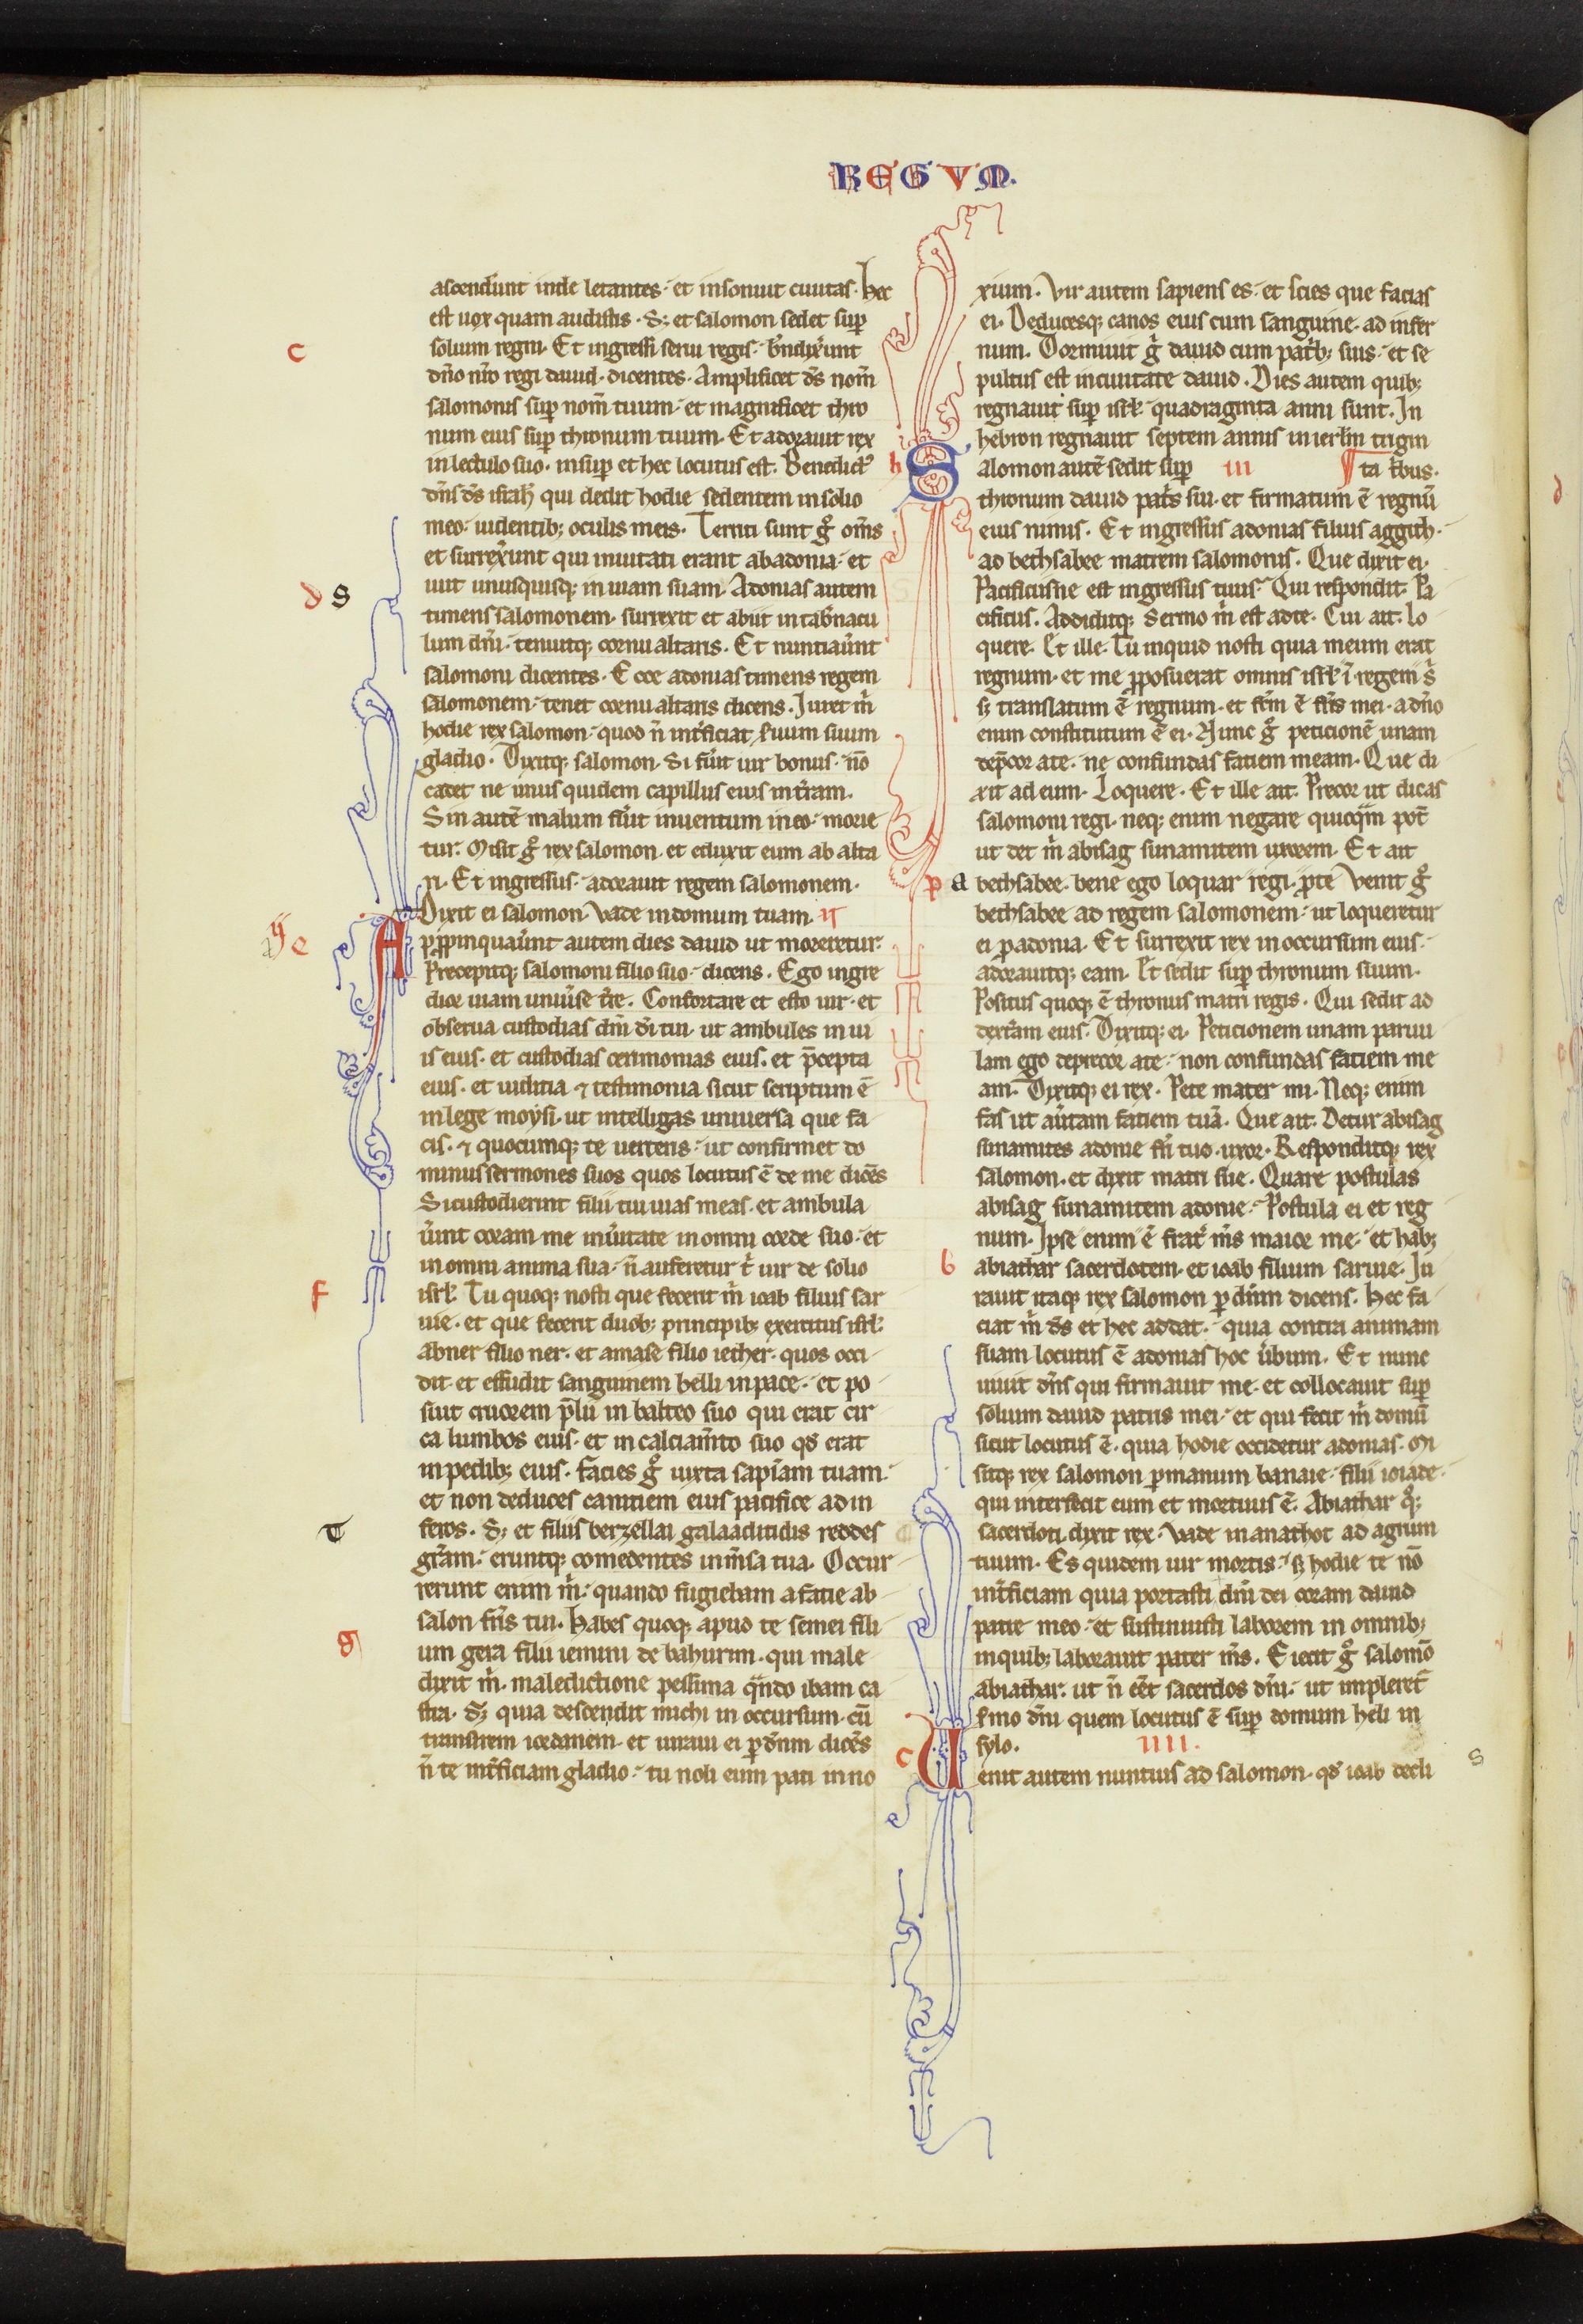 REGVM.
ascend̾unt inde letantes· et insonuit ciuitas· hec
est uox quam audistis· S; et salomon sedet sup̱
solium regni· Et ingressi serui regis· b̄ndix̾unt
c
dn̄o nr̄o regi dauid· dicentes· Amplificet ds̄ nom̄
salomonis sup̱ nom̄ tuum· et magnificet thro
num eius sup̱ thronum tuum· Et adorauit rex
in lectulo suo· insup̱ et hec locutus est· Benedictꝰ
dn̄s ds̄ isrl̄ qui dedit hodie sedentem in solio
meo· uidentib; oculis meis· Territi sunt gͦ om̄s
et surrex̾unt qui inuitati erant ab adonia· et
iuit unusquisq; in uiam suam· Adonias autem
d s
timens salomonem· surrexit et abiit in tab̾nacu
lum dn̄i· tenuitq; cornu altaris· Et nuntiau̾unt
salomoni dicentes· Ecce adonias timens regem
salomonem· tenet cornu altaris dicens· Iuret m̄
hodie rex salomon· quod n̄ int̾ficiat s̾uum suum
gladio· Dixitq; salomon· Si fu̾it uir bonus· nō
cadet ne unus quidem capillus eius in t̾ram·
Sin autē malum fu̾it inuentum in eo· morie
tur· Misit gͦ rex salomon· et eduxit eum ab alta
ri· Et ingressus· adorauit regem salomonem·
Dixit ei salomon· Vade in domum tuam· ii
ij e
Apꝓpinquau̾unt autem dies dauid ut moreretur·
Precepitq; salomoni filio suo· dicens· Ego ingre
dior uiam uniu̾se t̾re· Confortare et esto uir· et
obserua custodias dn̄i di̅ tui· ut ambules in ui
is eius· et custodias cerimonias eius· et p̄cepta
eius· et iudicia ⁊ testimonia sicut scriptum ē
in lege moysi· ut intelligas uniuersa que fa
cis· ⁊ quocumq; te uertens· ut confirmet do
minus sermones suos quos locutus ē de me dicēs
Si custodierint filii tui uias meas· et ambula
u̾int coram me in u̾itate in omni corde suo· et
in omni anima sua· n̄ auferetur t̄ uir de solio
f
isrl̄· Tu quoq; nosti que fecerit m̄ ioab filius sar
uie· et que fecerit duob; principib; exercitus isrl̄·
Abner filio ner· et amase filio iether· quos occi
dit· et effudit sanguinem belli in pace· et po
suit cruorem p̄lii in balteo suo qui erat cir
ca lumbos eius· et in calciam̄to suo qd̄ erat
in pedib; eius· facies gͦ iuxta sapiam tuam·
et non deduces canitiem eius pacifice ad in
T
feros· S; et filiis berzellai galaaditidis reddes
gr̄am· eruntq; comedentes in m̄sa tua· Occur
rerunt enim m̄· quando fugiebam a fatie ab
salon fr̄is tui· Habes quoq; apud te semei fili
g
um gera filii iemini de bahurim· qui male
dixit m̄· maledictione pessima qͣndo ibam ca
stra· S; quia descendit michi in occursum· cū
transirem iordanem· et iuraui ei p̱ dn̄m dicēs
n̄ te int̾ficiam gladio· tu noli eum pati inno
xium· Vir autem sapiens es· et scies que facias
ei· Deducesq; canos eius cum sanguine· ad infer
num· Dormiuit gͥ dauid cum pat̾b; suis· et se
pultus est in ciuitate dauid· Dies autem quib;
regnauit sup̱ isrl̄· quadraginta anni sunt· In
hebron regnauit septem annis in ierl̄m trigin
h
Salomon autē sedit sup̱ iii ¶ ta t̾bus·
thronum dauid pat̾s sui· et firmatum ē regnū
eius nimis· Et ingressus adonias filius aggith·
ad bethsabee matrem salomonis· Que dixit ei·
Pacificusne est ingressus tuus· Qui respondit· Pa
cificus· Addiditq; Sermo m̄ est ad te· Cui ait· lo
quere· Et ille· Tu inquid nosti quia meum erat
regnum· et me ꝓposuerat omnis isrl̄ i̅ regem s̾
S; translatum ē regnum· et fc̄m ē fr̄is mei· a dn̄o
enim constitutum ē ei· Nunc gͦ peticionē unam
dep̄cor a te· ne confundas fatiem meam· Que di
xit ad eum· Loquere· Et ille ait· Precor ut dicas
salomoni regi· neq; enim negare quicqͣm pot̄
ut det m̄ abisag sunamitem uxorem· Et ait
p a
bethsabee· bene ego loquar regi· p̱ te Venit gͦ
bethsabee ad regem salomonem· ut loqueretur
ei p̱ adonia· Et surrexit rex in occursum eius·
adorauitq; eam· Et sedit sup̱ thronum suum·
Positus quoq; ē thronus matri regis· Qui sedit ad
dext̾am eius· Dixitq; ei· Peticionem unam paruu
lam ego deprecor a te· non confundas fatiem me
am· Dixitq; ei rex· Pete mater mi· Neq; enim
fas ut au̾tam fatiem tuā· Que ait· Detur abisag
sunamites adonie fr̄i tuo· uxor· Responditq; rex
salomon· et dixit matri sue· Quare postulas
abisag sunamitem adonie· Postula ei et reg
num· Ipse enim ē frat̾ m̄s maior me· et hab;
b
abiathar sacerdotem· et ioab filium saruie· Iu
rauit itaq; rex salomon p̱ dn̄m dicens· Hec fa
ciat m̄ ds̄ et hec addat· quia contra animam
suam locutus ē adonias hoc u̾bum· Et nunc
uiuit dn̄s qui firmauit me· et collocauit sup̱
solium dauid patris mei· et qui fecit m̄ domū
sicut locutus ē· quia hodie occidetur adonias· Mi
sitq; rex salomon p̱ manum banaie· filii ioiade·
qui interfecit eum et mortuus ē· Abiathar qͦ;
sacerdoti dixit rex· Vade in anathot ad agrum
tuum· Es quidem uir mortis· ꜱ; hodie te nō
int̾ficiam quia portasti dn̄i dei coram dauid
patre meo· et sustinuisti laborem in omnib;
in quib; laborauit pater m̄s· Eiecit gͦ salomō
abiathar· ut n̄ eēt sacerdos dn̄i· ut impleret̄
s̾mo dn̄i quem locutus ē sup̱ domum heli in
sylo· iiii·
c
Uenit autem nuntius ad salomon· qd̄ ioab decli
s